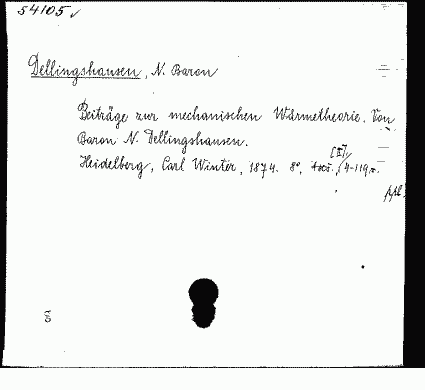 54105 ✓
Dellingshausen, N. Baron
Beiträge zur mechanischen Wärmetheorie. Von
Baron N. Dellingshausen.
[II],
Heidelberg, Carl Winter, 1874. 8°, 4-119,
8